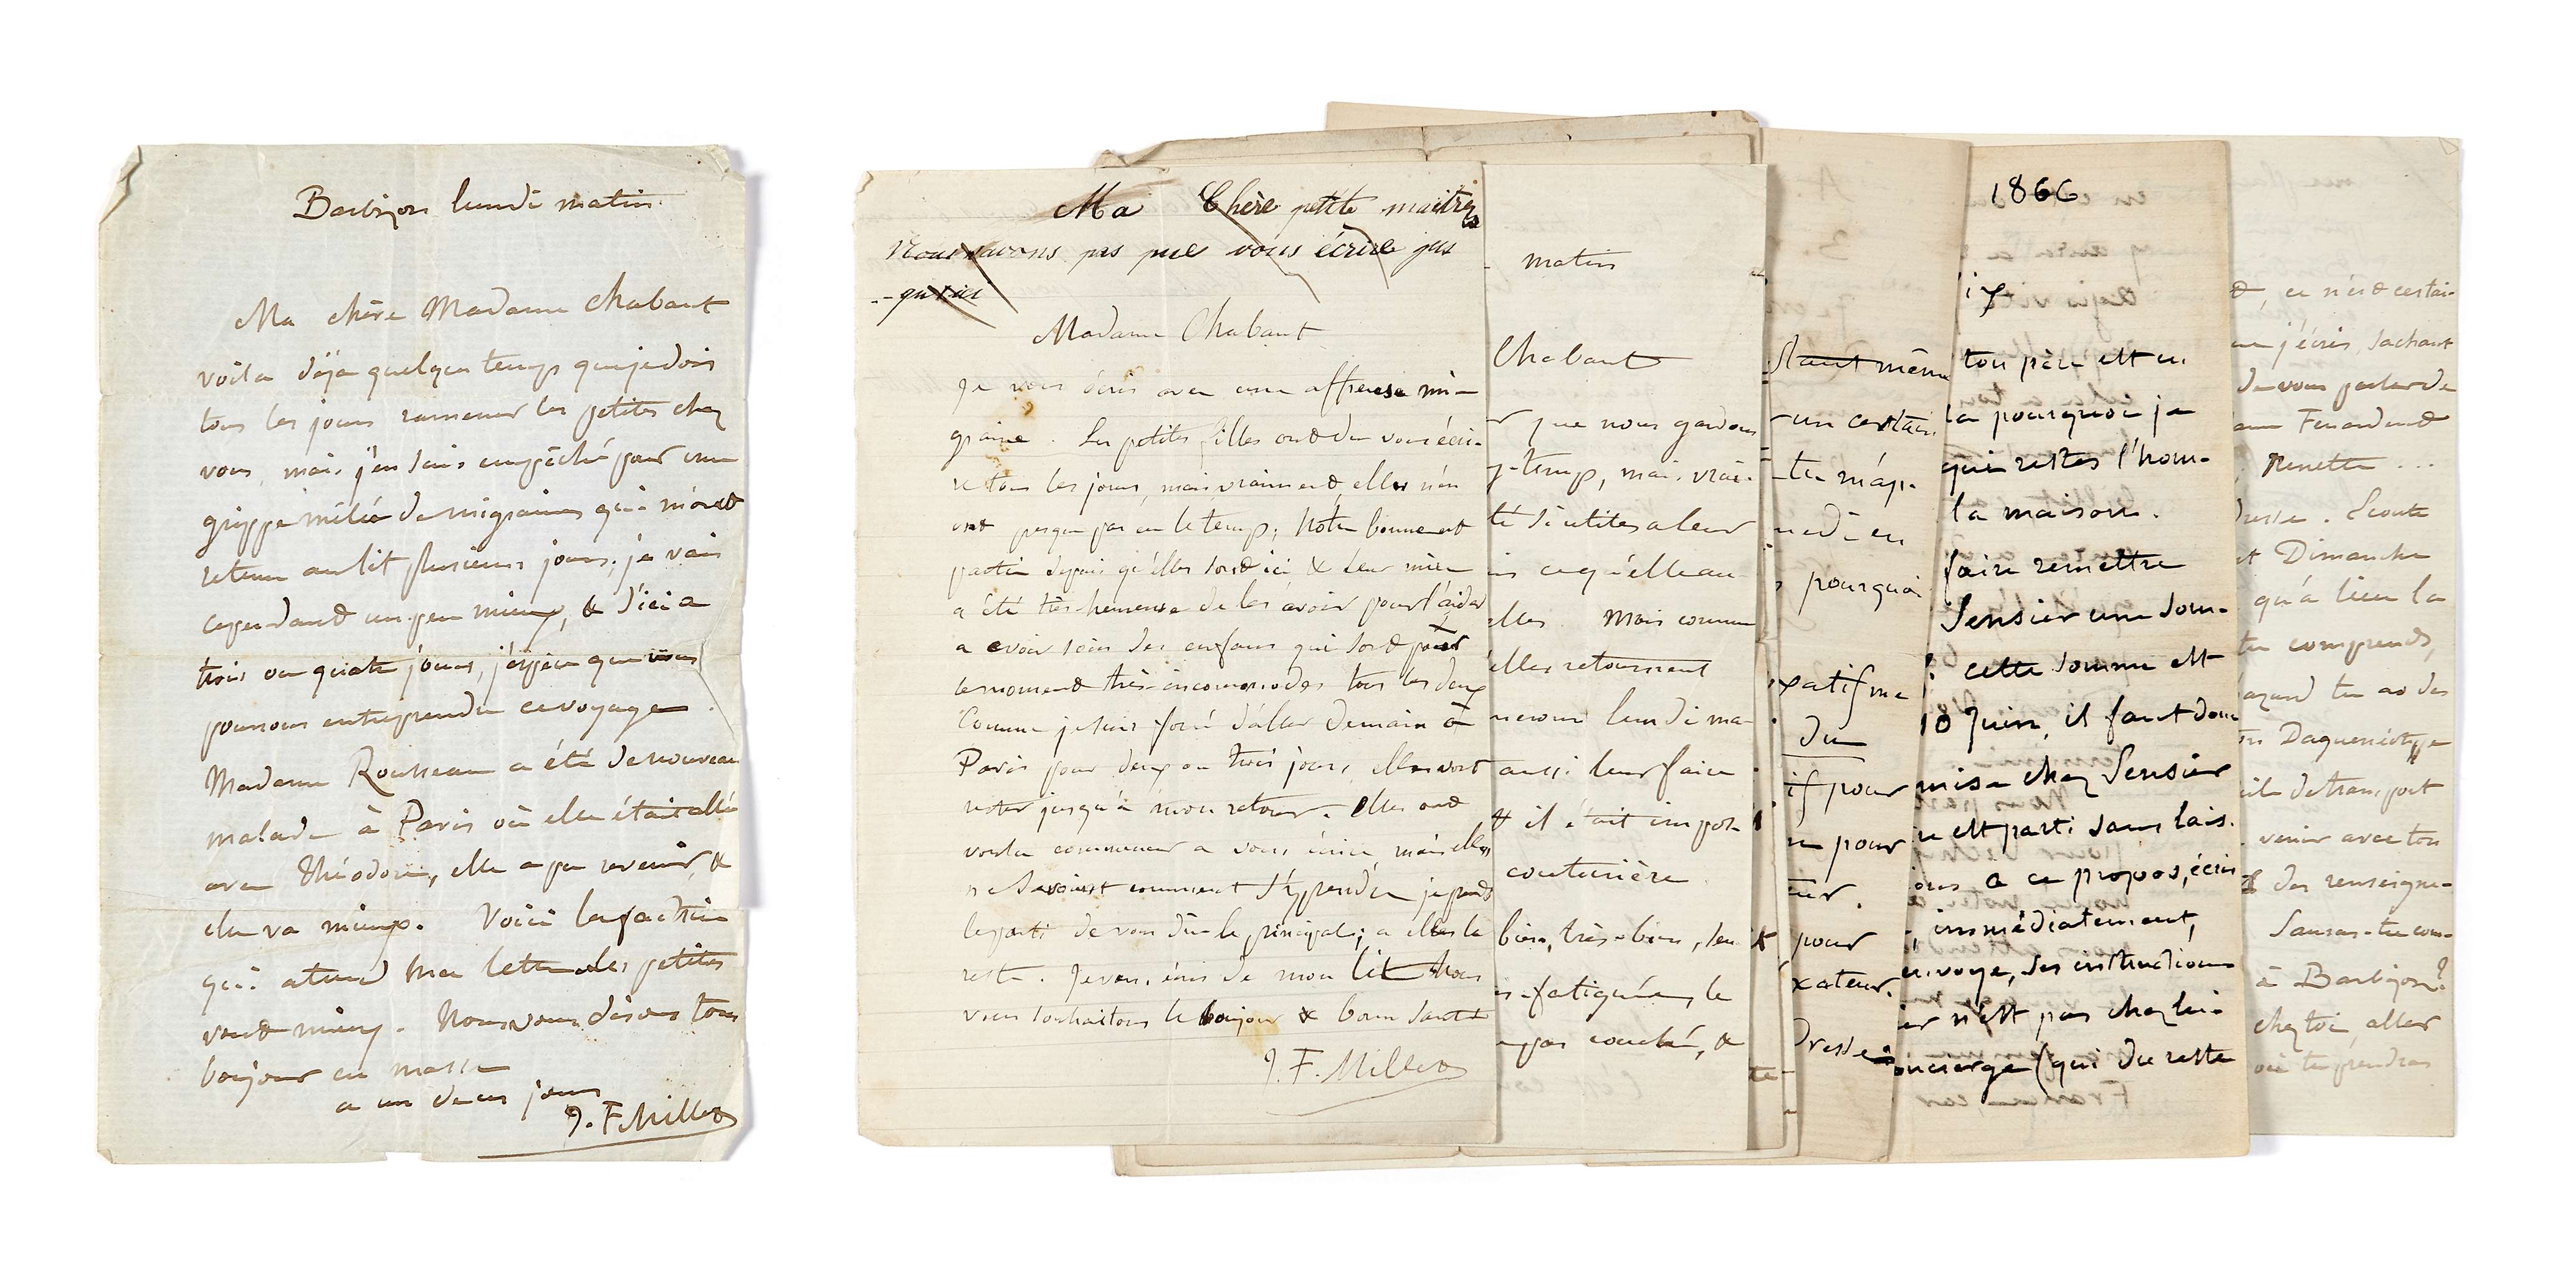 Barbizon lundi matin
Ma chère Madame Chabaut
voila déja quelque temps que je dois
tous les jours ramener les petites chez
vous, mais j'en suis empêché par une
grippe mêlée de migraines qui m'ont
retenu au lit plusieurs jours. je vais
cependant un peu mieux, & d'ici a
trois ou quatre jours, j'espère que nous
pourrons entreprendre ce voyage.
Madame Rousseau a été de nouveau
malade à Paris où elle était allée
avec Théodore, elle a pu revenir, &
elle va mieux. Voici le facteur
qui attend ma lettre. les petites
vont mieux. Nous vous disons tous
bonjour en masse
a un de ces jours
J. F. Millet
Ma Chère petite maitres
Nous navons pas pue vous écrire jus
-- qu'ici
Madame Chabaut
Je vous écris avec une affreuse mi-
graine. Les petites filles ont du vous écri-
re tous les jours, mais vraiment, elles n'en
ont presque pas eu le temps; Notre bonne est
partie depuis qu'elles sont ici & leur mère
a été très-heureuse de les avoir pour l'aider
a avoir soin des enfans qui sont pour
le moment très-incommodes tous les deux
Comme je suis forcé d'aller demain à
Paris pour deux ou trois jours, elles vont
rester jusqu'à mon retour. Elles ont
voulu commencer a vous écrire, mais elles
ne savaient comment s'y prendre je prends
le parti de vous dire le principal; a elles le
reste. Je vous écris de mon lit Nous
vous souhaitons le bonjour & bonne santé
J. F. Millet
matin
Chabaut
r que nous gardons
g-temps, mais vrai-
té si utiles a leur
is ce qu'elle au-
elles. Mais comme
elles retournent
nerons lundi ma-
aussi leur faire
& il était impos-
couturière.
bien, très-bien, seu-
s-fatiguée, le
pas couché, &
tant même
un certain
-tu m'ap-
pourquoi
xatif me
du
if pour
pour
pour
xateur.
Dresse
1866
ton père est en
la pourquoi je
qui restes l'hom-
la maison.
faire remettre
Sensier une som-
? cette somme est
10 Juin, il faut donc
mise chez Sensier
est parti sans lais-
a ce propos, écris
, immédiatement,
envoye, des instructions
er n'est pas chez lui
oncierge (qui du reste
ce n'est certai-
j'écris, sachant
de vous parler de
Fenardent
Renette ...
dresse. Ecoute
et Dimanche
qu'a lieu la
tu comprends,
tu as des
Daguerréotype
de transport
venir avec ton
des renseigne-
Sauras-tu com-
à Barbizon?
chez toi, aller
où tu prendras